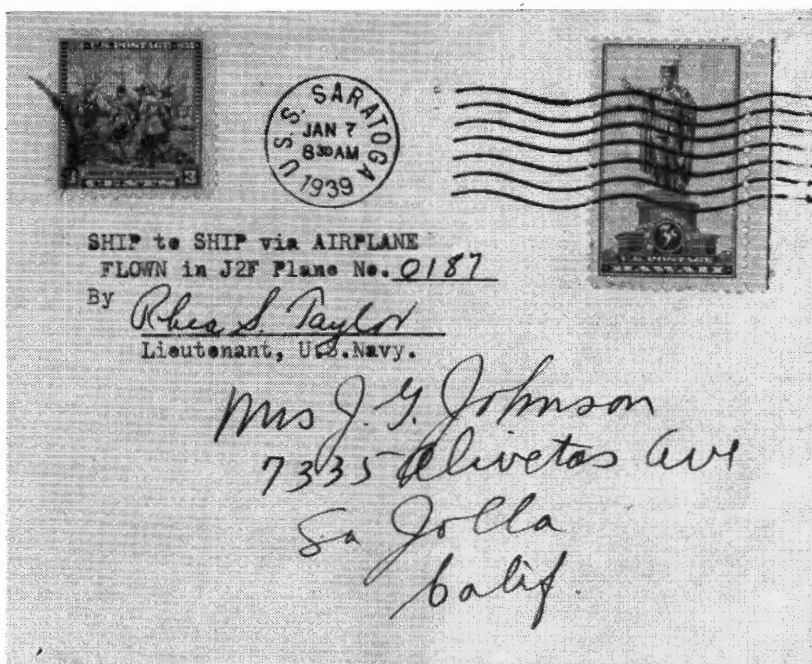 U.S. POSTAGE
3
U.S.S. SARATOGA
JAN 7
8 30 AM
1939
U.S. POSTAGE
HAWAII
SHIP to SHIP via AIRPLANE
FLOWN in J2F Plane No. 0187
By Rhea S. Taylor
Lieutenant, U.S.Navy.
Mrs J. G. Johnson
7335 Olivetas Ave
La Jolla
Calif.